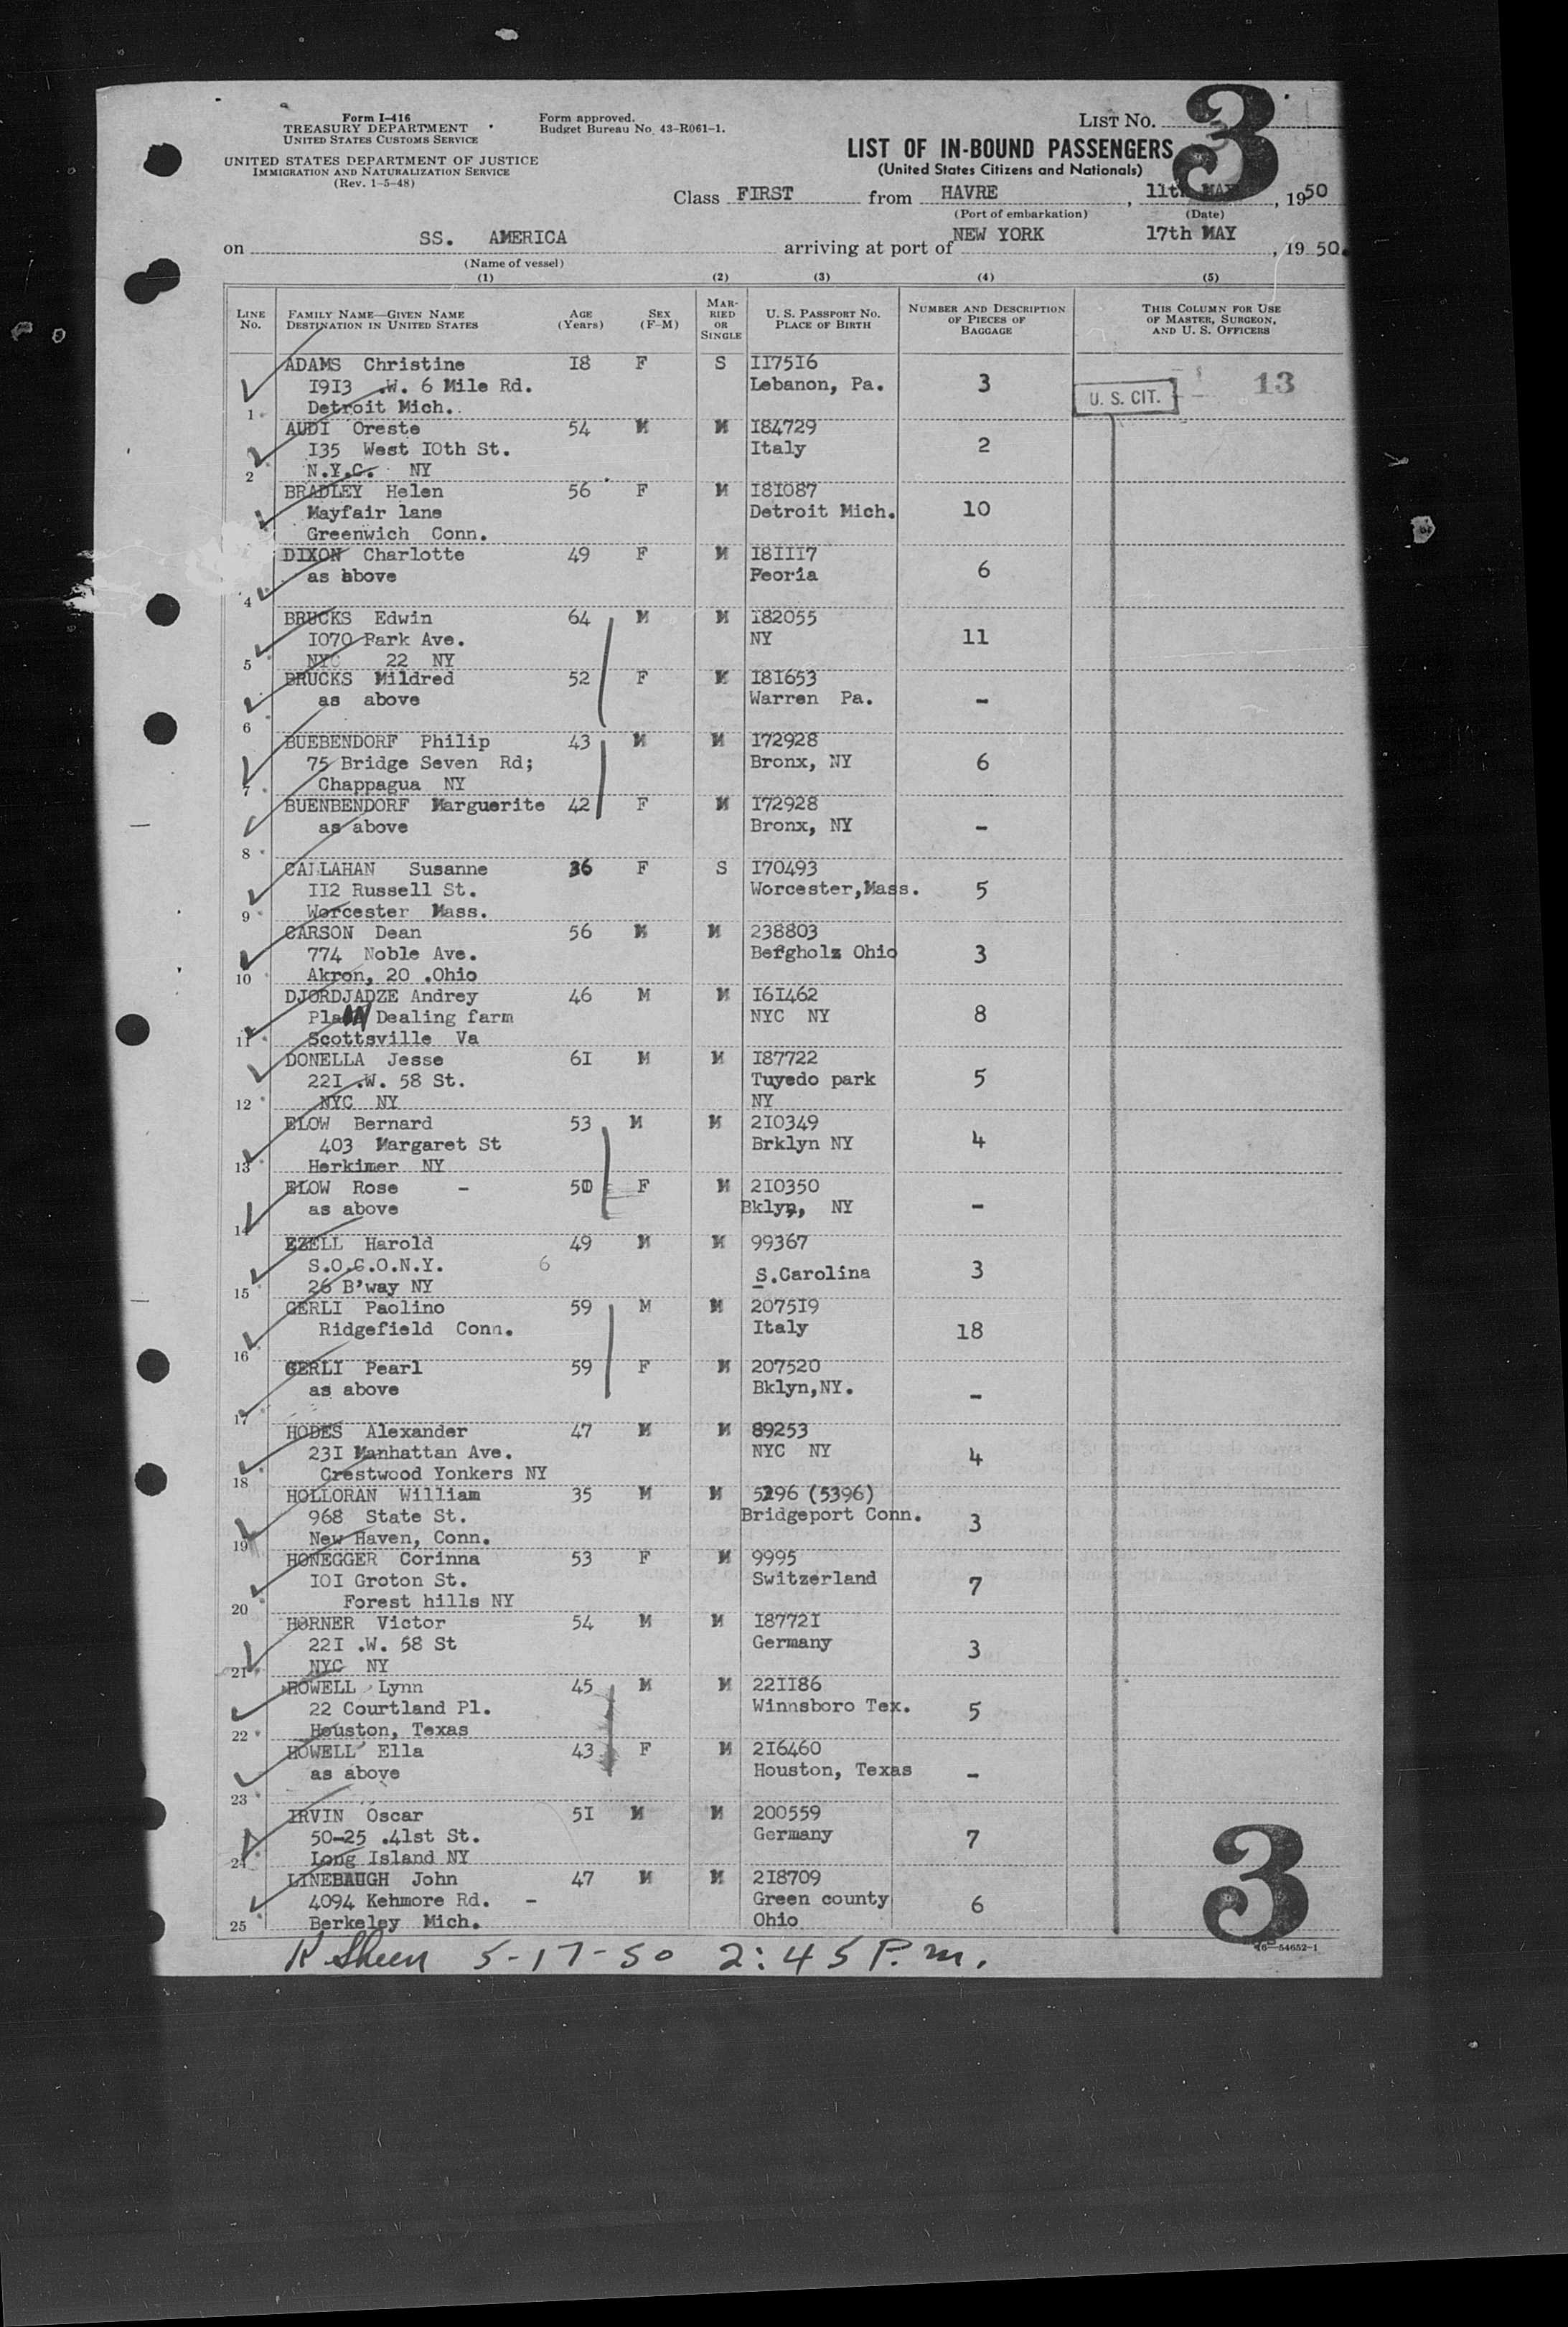 Form I-416
TREASURY DEPARTMENT
UNITED STATES CUSTOMS SERVICE
UNITED STATES DEPARTMENT OF JUSTICE
IMMIGRATION AND NATURALIZATION SERVICE
(Rev. 1-5-48)
Form approved.
Budget Bureau No. 43-R061-1.
LIST NO. 3
LIST OF IN-BOUND PASSENGERS
(United States Citizens and Nationals)
Class FIRST from HAVRE, 11th MAY, 1950
(Port of embarkation) (Date)
on SS. AMERICA arriving at port of NEW YORK 17th MAY, 1950.
(Name of vessel)
(1) (2) (3) (4) (5)
LINE NO. FAMILY NAME—GIVEN NAME DESTINATION IN UNITED STATES AGE (Years) SEX (F-M) MARRIED OR SINGLE U. S. PASSPORT NO. PLACE OF BIRTH NUMBER AND DESCRIPTION OF PIECES OF BAGGAGE THIS COLUMN FOR USE OF MASTER, SURGEON, AND U. S. OFFICERS
ADAMS Christine 18 F S II75I6
I9I3 .W. 6 Mile Rd. Lebanon, Pa. 3 U. S. CIT. 13
1 Detroit Mich.
AUDI Oreste 54 M M I84729
I35 West IOth St. Italy 2
2 N.Y.C. NY
BRADLEY Helen 56 F M I8I087
Mayfair lane Detroit Mich. 10
Greenwich Conn.
DIXON Charlotte 49 F M I8III7
as above Peoria 6
4
BRUCKS Edwin 64 M M I82055
I070 Park Ave. NY 11
5 NYC 22 NY
BRUCKS Mildred 52 F M I8I653
as above Warren Pa. -
6
BUEBENDORF Philip 43 M M I72928
75 Bridge Seven Rd; Bronx, NY 6
7 Chappagua NY
BUENBENDORF Marguerite 42 F M I72928
as above Bronx, NY -
8
CALLAHAN Susanne 36 F S I70493
II2 Russell St. Worcester,Mass. 5
9 Worcester Mass.
CARSON Dean 56 M M 238803
774 Noble Ave. Bergholz Ohio 3
10 Akron, 20 .Ohio
DJORDJADZE Andrey 46 M M I6I462
Plain Dealing farm NYC NY 8
11 Scottsville Va
DONELLA Jesse 6I M M I87722
22I .W. 58 St. Tuyedo park 5
12 NYC NY NY
ELOW Bernard 53 M M 2I0349
403 Margaret St Brklyn NY 4
13 Herkimer NY
ELOW Rose - 50 F M 2I0350
as above Bklyn, NY -
14
EZELL Harold 49 M M 99367
S.O.C.O.N.Y. 6 S.Carolina 3
15 26 B'way NY
GERLI Paolino 59 M M 2075I9
Ridgefield Conn. Italy 18
16
GERLI Pearl 59 F M 207520
as above Bklyn,NY. -
17
HODES Alexander 47 M M 89253
23I Manhattan Ave. NYC NY 4
18 Crestwood Yonkers NY
HOLLORAN William 35 M M 5296 (5396)
968 State St. Bridgeport Conn. 3
19 New Haven, Conn.
HONEGGER Corinna 53 F M 9995
IOI Groton St. Switzerland 7
20 Forest hills NY
HORNER Victor 54 M M I8772I
22I .W. 58 St Germany 3
21 NYC NY
HOWELL Lynn 45 M M 22II86
22 Courtland Pl. Winnsboro Tex. 5
22 Houston, Texas
HOWELL Ella 43 F M 2I6460
as above Houston, Texas -
23
IRVIN Oscar 5I M M 200559
50-25 .41st St. Germany 7
24 Long Island NY
LINEBAUGH John 47 M M 2I8709
4094 Kehmore Rd. - Green county 6
25 Berkeley Mich. Ohio
3
16—54652-1
K Sheen 5-17-50 2:45 P.m.